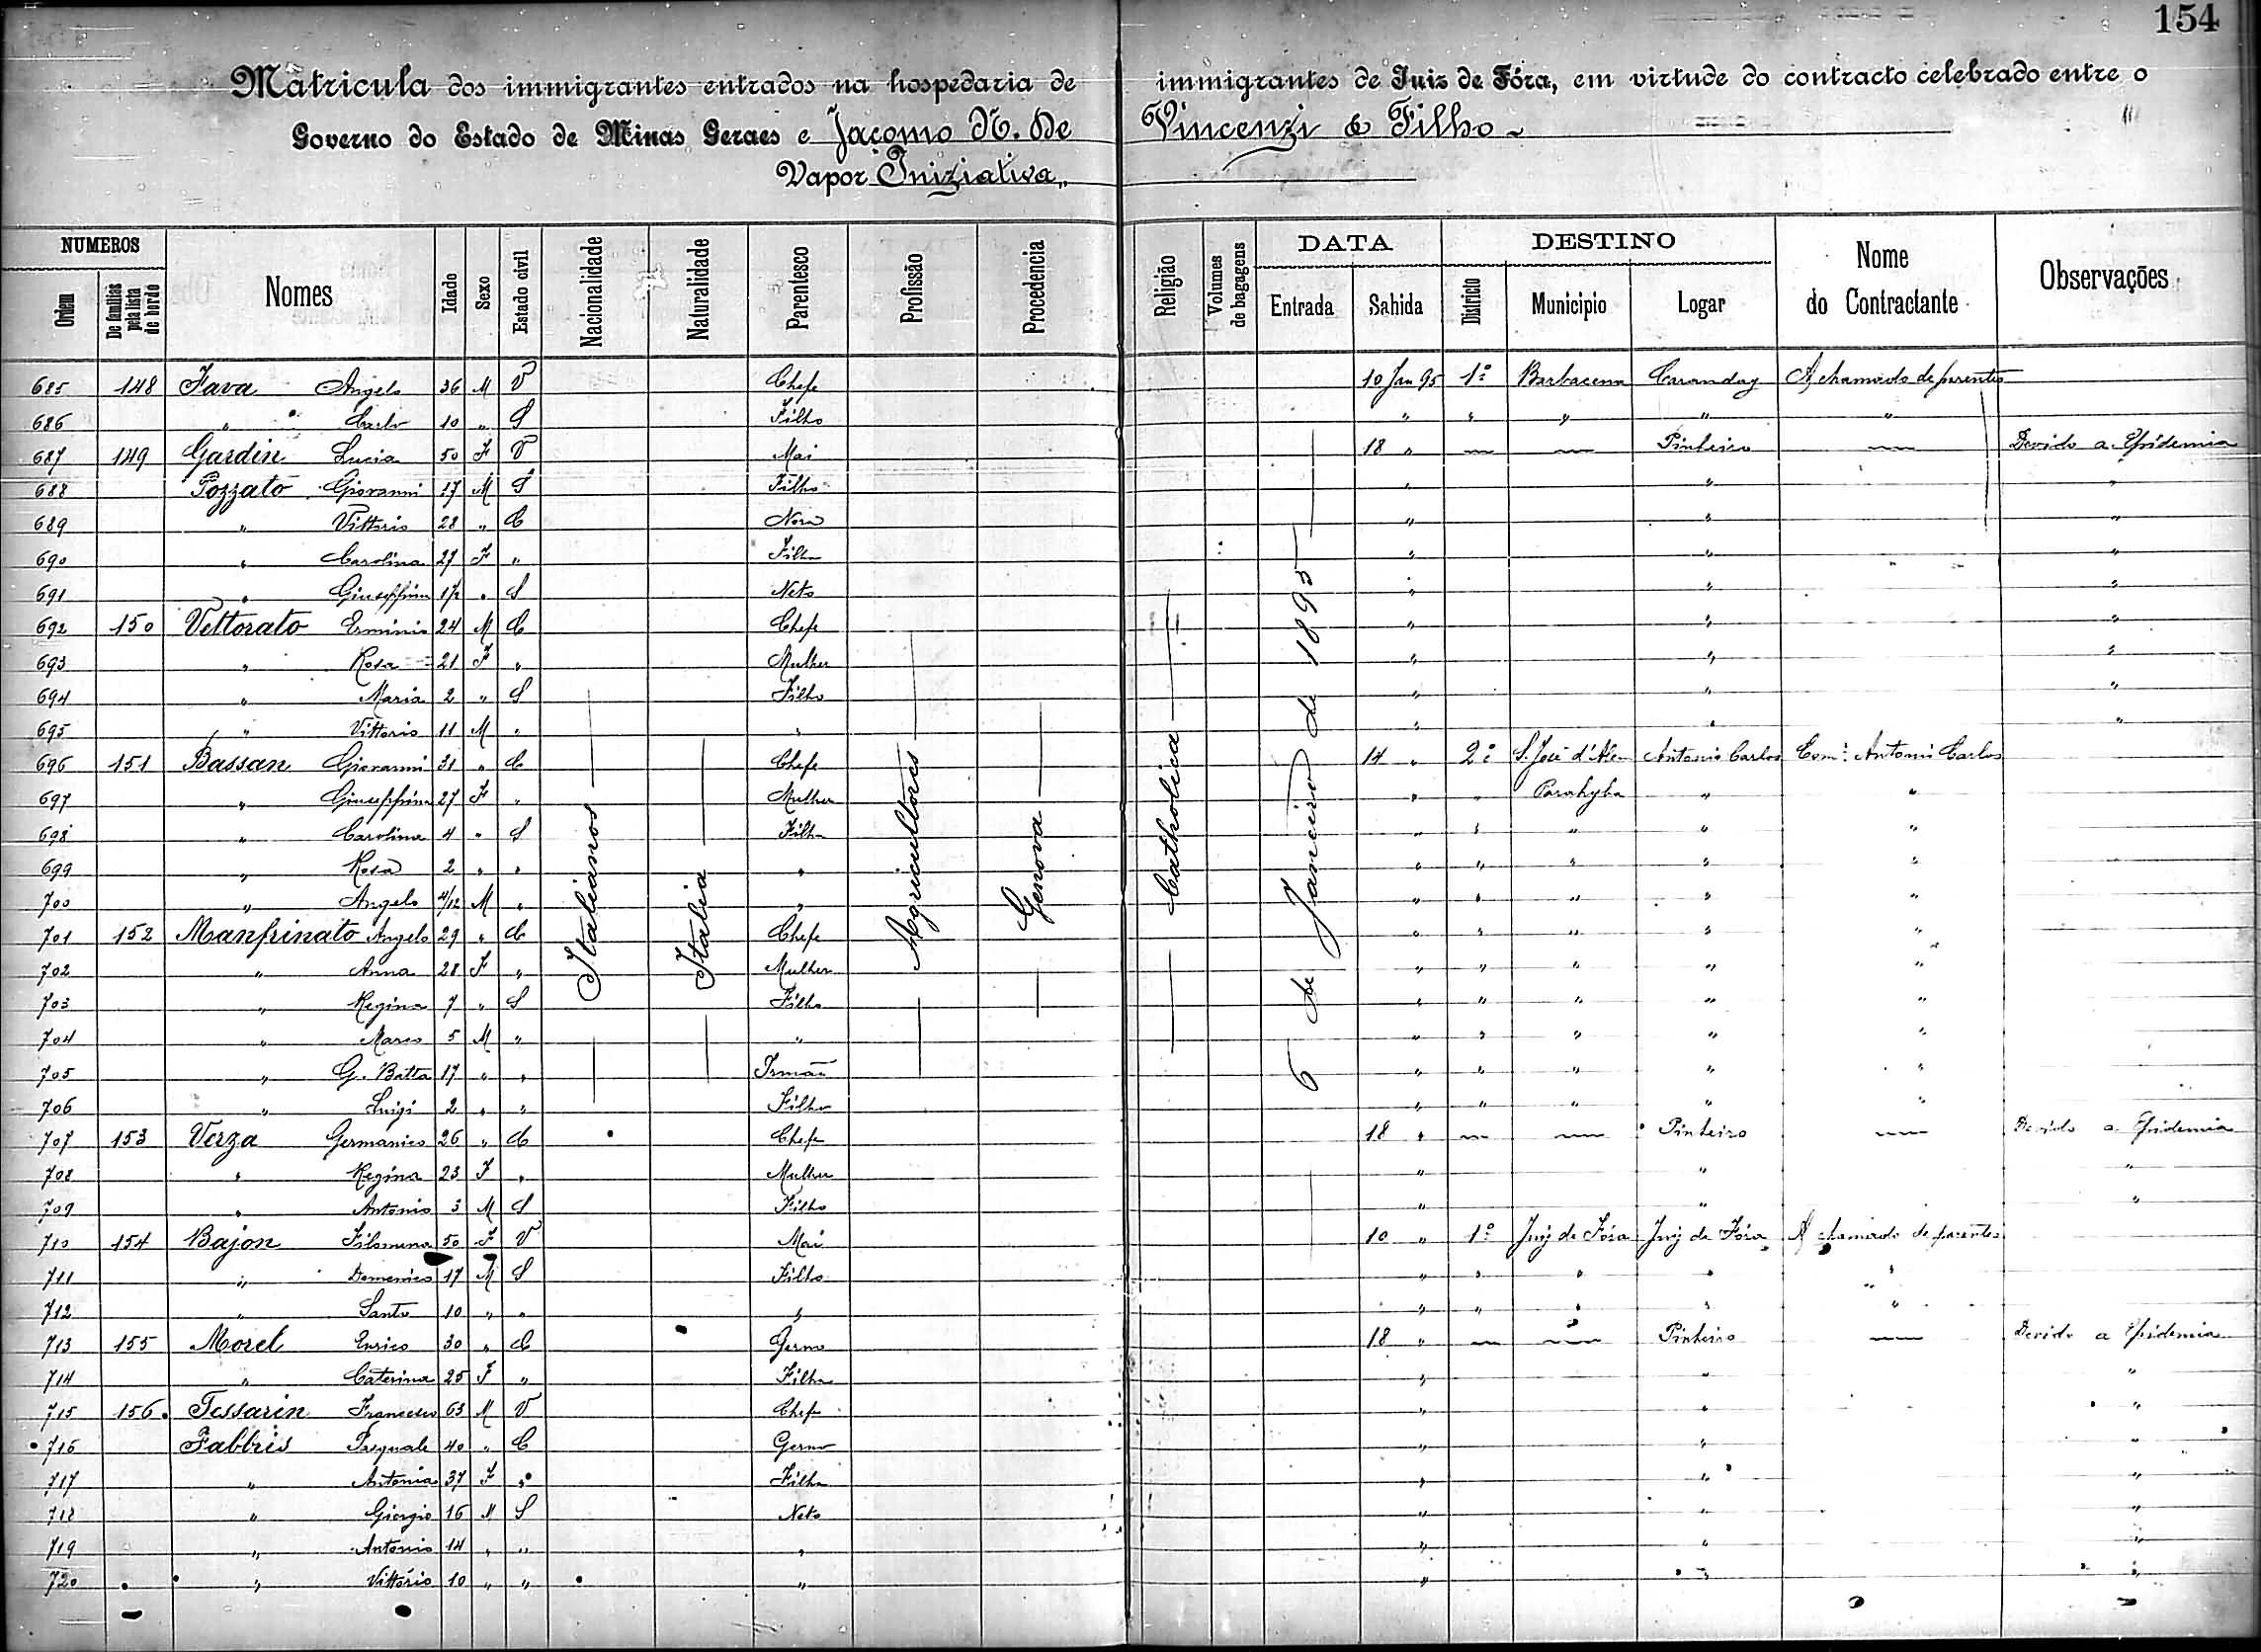 154
Matricula dos immigrantes entrados na hospedaria de immigrantes de Juiz de Fóra, em virtude do contracto celebrado entre o
Governo do Estado de Minas Geraes e Jacomo N. De Vincenzi & Filho
Vapor Iniziativa
NUMEROS DATA DESTINO
Ordem De familias pela lista de bordo Nomes Idade Sexo Estado civil Nacionalidade Naturalidade Parentesco Profissão Procedencia Religião Volumes de bagagens Entrada Sahida Districto Municipio Logar Nome do Contractante Observações
Italianos Italia Agricultores Genova Catholica 6 de Janeiro de 1895
685 148 Fava Angelo 36 M V Chefe 10 Jan 95 1º Barbacena Caranday A chamado de parentes
686 " Carlo 10 " S Filho " " " " "
687 149 Gardin Lucia 50 F V Mai 18 " — — Pinheiro — Devido a Epidemia
688 Pozzato Giovanni 17 M S Filho " " "
689 " Vittorio 28 " C Nora " " "
690 " Carolina 27 F " Filha " " "
691 " Giuseppina " S Neto " " "
692 150 Vettorato Erminio 24 M C Chefe " " "
693 " Rosa 21 F " Mulher " " "
694 " Maria 2 " S Filho " " "
695 " Vittorio 11 M " " " " "
696 151 Bassan Giovanni 31 " C Chefe 14 " 2º S. José d'Alem Antonio Carlos Com: Antonio Carlos
697 " Giuseppina 27 F " Mulher " " Parahyba " "
698 " Carolina 4 " S Filha " " " " "
699 " Rosa 2 " " " " " " " "
700 " Angelo 4/12 M " " " " " " "
701 152 Manfrinato Angelo 29 " C Chefe " " " " "
702 " Anna 28 F " Mulher " " " " "
703 " Regina 7 " S Filho " " " " "
704 " Marco 5 M " " " " " " "
705 " G. Batta 17 " " Irmão " " " " "
706 " Luigi 2 " " Filho " " " " "
707 153 Verza Germanico 26 " C Chefe 18 " — — Pinheiro — Devido a Epidemia
708 " Regina 23 F " Mulher " " "
709 " Antonio 3 M S Filho " " "
710 154 Bajon Filomena 50 F V Mai 10 " 1º Juiz de Fóra Juiz de Fóra A chamado de parentes
711 " Domenico 17 M S Filho " " " " "
712 " Santo 10 " " " " " " " "
713 155 Morel Enrico 30 " C Genro 18 " — — Pinheiro — Devido a Epidemia
714 " Caterina 25 F " Filha " " "
715 156 Tessarin Francesco 63 M V Chefe " " "
716 Fabbris Pasquale 40 " C Genro " " "
717 " Antonia 37 F " Filha " " "
718 " Giorgio 16 M S Neto " " "
719 " Antonio 14 " " " " " "
720 " Vittorio 10 " " " " " "